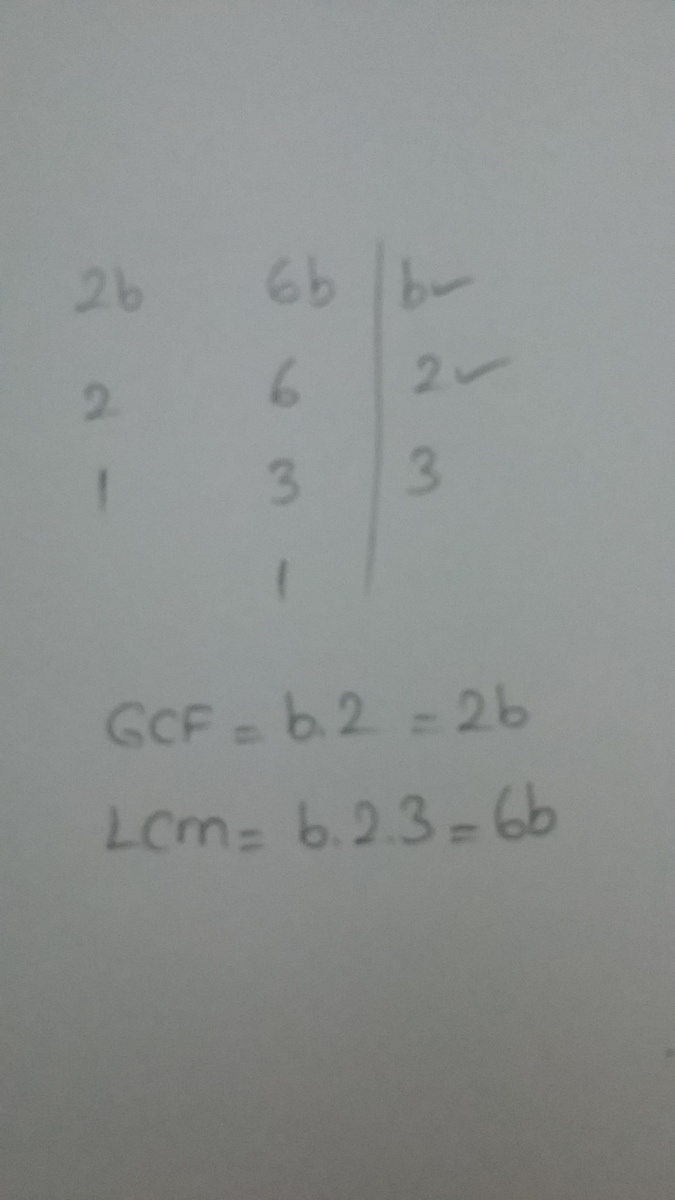 2b 6b b✓
2 6 2✓
1 3 3
1
GCF = b.2 = 2b
LCM = b.2.3 = 6b